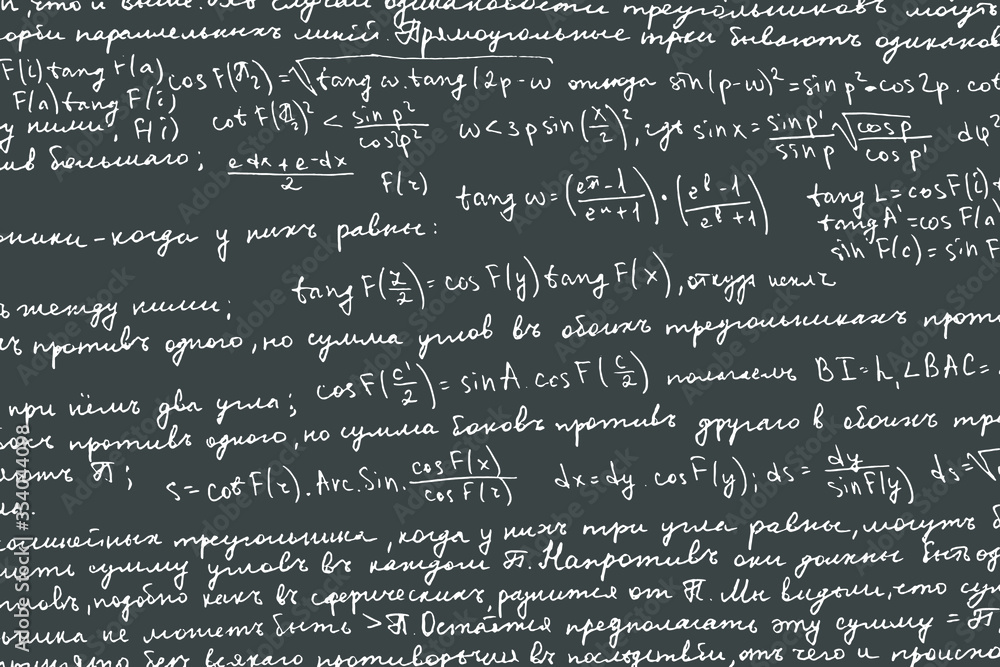 и, что и выше. Въ случаи одинаковости треугольниковъ могутъ
параллельныхъ линій. Прямоугольные тр-ки бываютъ одинаков
F(i) tang F(a) cos F(π/2) = √tang ω. tang (2p - ω откуда sin (p-ω)² = sin p² - cos 2p. cot
F(a) tang F(i)
у ними, F(i) cot F(π/2)² < sin p²/cos φ² ω < 3 p sin (x/2)², гдѣ sin x = sin p'/sin p √cos p/cos p' dφ²
ив большаго; e dx + e - dx/2 F(r) tang ω = (eⁿ - 1/eⁿ + 1) · (eˡ - 1/eˡ + 1) tang L = cos F(i)
tang A' = cos F(a)
оники - когда у нихъ равны: sin F(c) = sin F
tang F(z/2) = cos F(y) tang F(x), откуда
ь между ними;
противъ одного, но сумма углов въ обоихъ треугольникахъ проти
cos F(c'/2) = sin A. cos F(c/2) полагаемъ BI = h, ∠BAC =
при нёмъ два угла;
противъ одного, но сумма боковъ противъ другаго в обоихъ тр
π; s = cot F(r). Arc. Sin. cos F(x)/cos F(r) dx = dy. cos F(y); ds = dy/sin F(y) ds = √
треугольника, когда у нихъ три угла равны, могутъ б
сумму угловъ въ каждом π. Напротивъ они должны быть од
подобно какъ въ сферическихъ, разнится от π. Мы видѣли, что сум
ьника не можетъ быть > π. Остаётся предполагать эту сумму = π
безъ всякаго противорѣчія въ послѣдствіи, отъ чего и происхо
Adobe Stock | 354044098